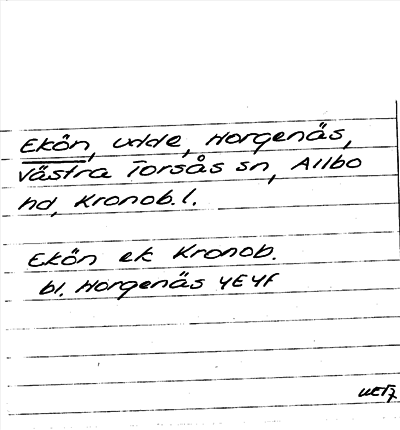 Ekön, udde, Horgenäs,
Västra Torsås sn, Allbo
hd, Kronob. l.
Ekön ek Kronob.
bl. Horgenäs 4E4f